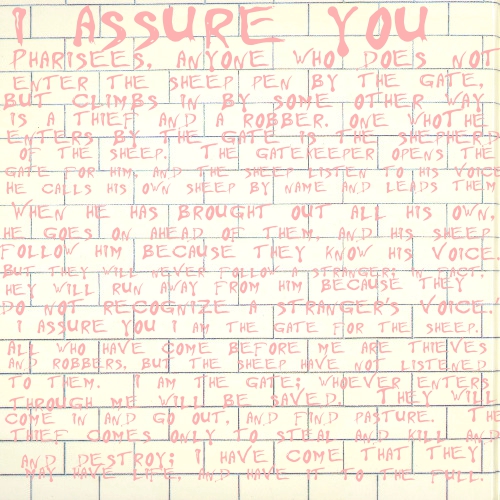 I ASSURE YOU
PHARISEES, ANYONE WHO DOES NOT
ENTER THE SHEEP PEN BY THE GATE,
BUT CLIMBS IN BY SOME OTHER WAY
IS A THIEF AND A ROBBER. ONE WHOTHE
ENTERS BY THE GATE IS THE SHEPHERD
OF THE SHEEP. THE GATEKEEPER OPENS THE
GATE FOR HIM, AND THE SHEEP LISTEN TO HIS VOICE
HE CALLS HIS OWN SHEEP BY NAME AND LEADS THEM
WHEN HE HAS BROUGHT OUT ALL HIS OWN,
HE GOES ON AHEAD OF THEM, AND HIS SHEEP
FOLLOW HIM BECAUSE THEY KNOW HIS VOICE.
BUT THEY WILL NEVER FOLLOW A STRANGER; IN FACT,
HEY WILL RUN AWAY FROM HIM BECAUSE THEY
DO NOT RECOGNIZE A STRANGER'S VOICE.
I ASSURE YOU I AM THE GATE FOR THE SHEEP.
ALL WHO HAVE COME BEFORE ME ARE THIEVES
AND ROBBERS, BUT THE SHEEP HAVE NOT LISTENED
TO THEM. I AM THE GATE; WHOEVER ENTERS
THROUGH ME WILL BE SAVED. THEY WILL
COME IN AND GO OUT, AND FIND PASTURE. THE
THIEF COMES ONLY TO STEAL AND KILL AND
AND DESTROY; I HAVE COME THAT THEY
MAY HAVE LIFE, AND HAVE IT TO THE FULL.